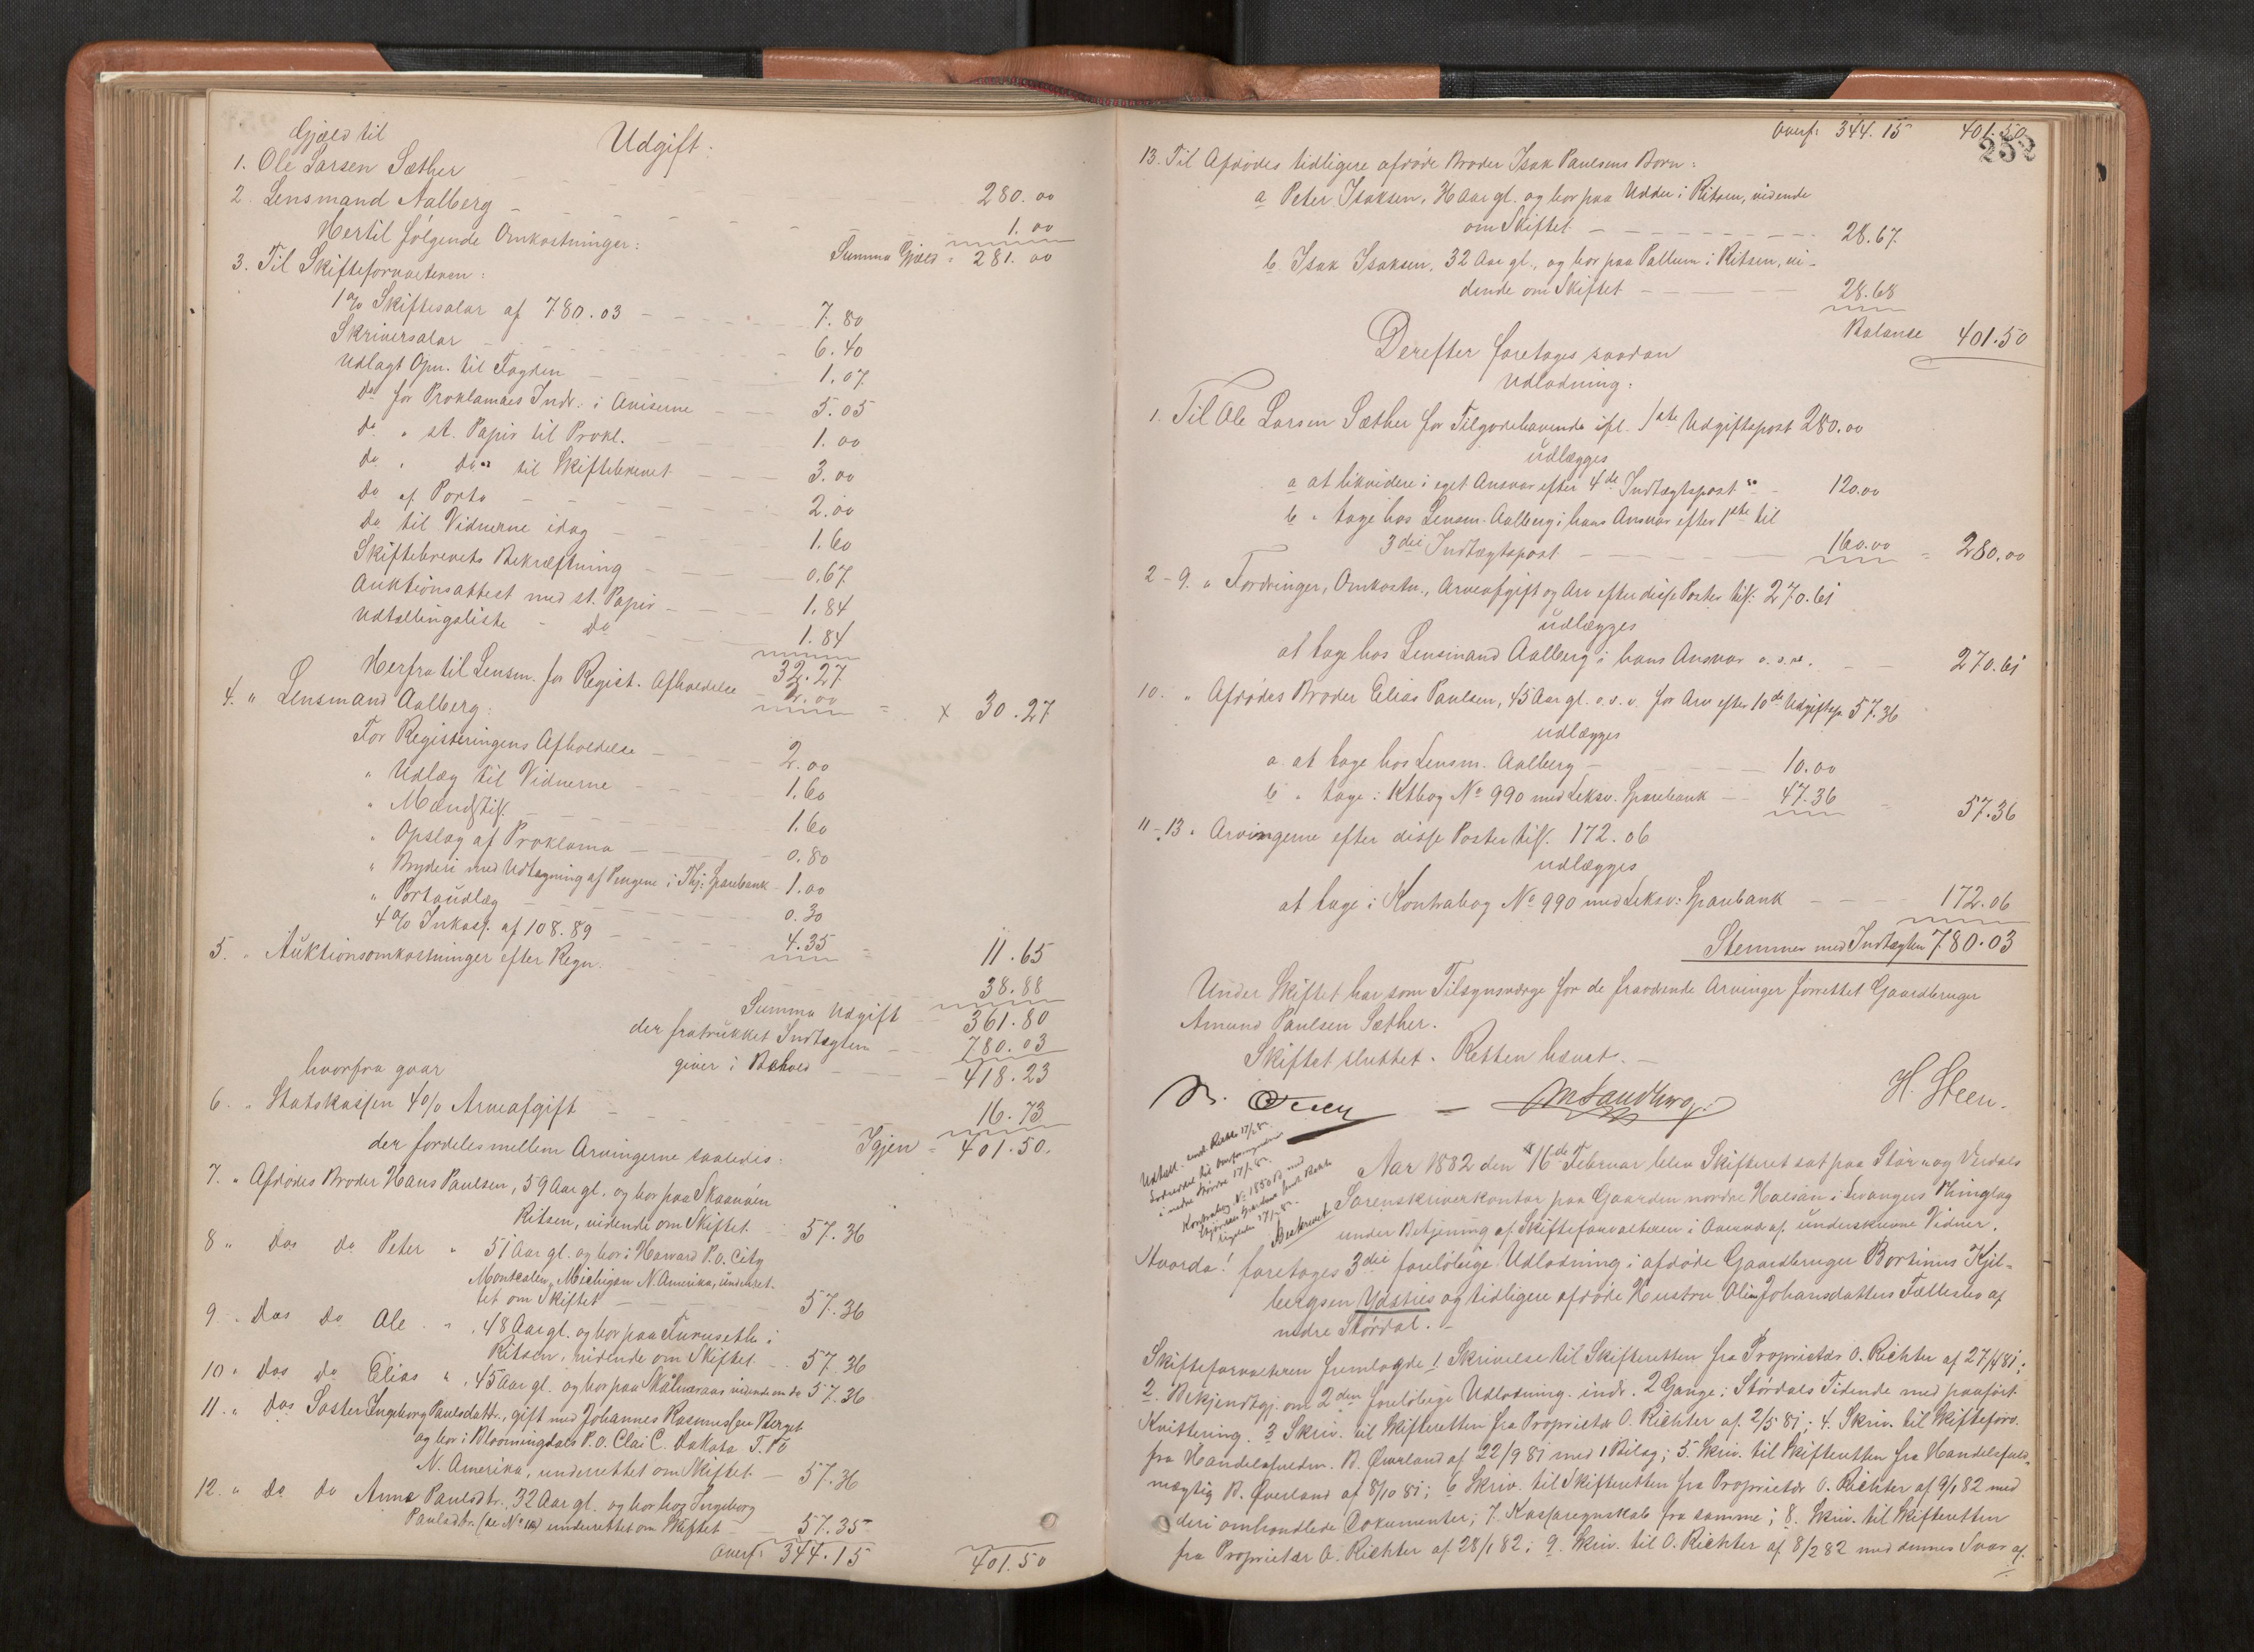 Gjæld til
Udgift:
1. Ole Larsen Sæther 280.00
2. Lensmand Aalberg 1.00
Summa Gjæld = 281.00
Hertil følgende Omkostninger:
3. Til Skifteforvalteren:
1% Skiftesalar af 780.03 7.80
Skriversalar 6.40
Udlagt Opm. til Fogden 1.07
Do for Proklamaes Indr. i Aviserne 5.05
Do " st. Papir til Prokl. 1.00
Do " Do til Skiftebrevet 3.00
Do af Porto 2.00
Do til Vidnerne idag 1.60
Skiftebrevets Bekræftning 0.67
Auktionsattest med st. Papir 1.84
Udtællingsliste - Do 1.84
32.27
Herfra til Lensm. for Regist. Afholdelse 2.00 = x 30.27
4. " Lensmand Aalberg:
For Registeringens Afholdelse 2.00
" Udlæg til Vidnerne 1.60
" Mændstil. 1.60
" Opslag af Proklama 0.80
" Bryderi med Udtagning af Pengene i Thj: Sparebank 1.00
" Portoudlæg 0.30
4% Inkass. af 108.89 4.35 = 11.65
5. " Auktionsomkostninger efter Regn. 38.88
Summa Udgift 361.80
der fratrukket Indtægten 780.03
giver i Behold 418.23
hvorfra gaar
6. " Statskassen 4% Arveafgift 16.73
Igjen = 401.50.
der fordeles mellem Arvingerne saaledes:
7. " Afdødes Broder Hans Paulsen, 59 Aar gl. og bor paa
Ritsen, vidende om Skiftet 57.36
8 " Dos do Peter " 51 Aar gl. og bor i Harvard P.O. City
Montcalm, Michigan N. Amerika, underret-
tet om Skiftet 57.36
9 " Dos do Ole " 48 Aar gl. og bor paa Furuseth i
Ritsen, vidende om Skiftet 57.36
10 " Dos do Elias " 45 Aar gl. og bor paa vidende om do 57.36
11. " Dos Søster Ingeborg Paulsdattr., gift med Johannes Rasmussen Berget
og bor i Bloomingdals P.O. Clai C. Dakota T.
N. Amerika, underrettet om Skiftet 57.36
12. " Do do Anne Paulsdtr. 32 Aar gl. og bor hos Ingeborg
Paulsdtr. (se No 11) underrettet om Skiftet 57.35
Overf: 344.15 401.50
Overf: 344.15 401.50
252
13. Til Afdødes tidligere afdøde Broder Isak Paulsens Børn:
a Peter Isaksen, 36 Aar gl. og bor paa Udder i Ritsen, vidende
om Skiftet 28.67.
b. Isak Isaksen, 32 Aar gl., og bor paa Pallum i Ritsen, vi-
dende om Skiftet 28.68
Balance 401.50
Derefter foretages saadan
Udlodning:
1. Til Ole Larsen Sæther for Tilgodehavende ifl. 1ste Udgiftspost 280.00
udlægges
a at likvidere i eget Ansvar efter 4de Indtægtspost 120.00
b " tage hos Lensm. Aalberg i hans Ansvar efter 1ste til
3die Indtægtspost 160.00 = 280.00
2-9. " Fordringer, Omkostn., Arveafgift og Arv efter disse Poster tils: 270.61
udlægges
at tage hos Lensmand Aalberg i hans Ansvar o.s.v. 270.61
10. " Afdødes Broder Elias Paulsen, 45 Aar gl. o.s.v. for Arv efter 10de Udgiftsp. 57.36
udlægges
a. at tage hos Lensm. Aalberg 10.00
b " tage i Ktbog No 990 med Leksv. Sparebank 47.36 57.36
11-13 " Arvingerne efter disse Poster tils. 172.06
udlægges
at tage i Kontrabog No 990 med Leksv: Sparebank 172.06
Stemmer med Indtægten 780.03
Under Skiftet har som Tilsynsværge for de fraværende Arvinger forrettet Gaardbruger
Amund Paulsen Sæther.
Skiftet sluttet. Retten hævet.
H. Steen.
Aar 1882 den 16de Februar blev Skifteret sat paa Stør- og Verdals
Sorenskriverkontor paa Gaarden nordre Halsan i Levangers Thinglag
under Betjening af Skifteforvalteren i Overvær af underskrevne Vidner.
Hvorda!
foretages 3die foreløbige Udlodning i afdøde Gaardbruger Bortinus Kjil-
bergsen Ydsties og tidligere afdøde Hustru Olin Johansdatters Fællesbo af
nedre Størdal.
Skifteforvalteren fremlagde 1 Skrivelse til Skifteretten fra Proprietær O. Richter af 27/4 81;
2. Bekjendtgj. om 2den foreløbige Udlodning indr. 2 Gange i Størdals Tidende med paaført
Kvittering. 3 Skriv. til Skifteretten fra Proprietær O. Richter af 2/5 81; 4. Skriv. til Skifteforv.
fra Handelsfuldm. B. Øverland af 22/9 81 med 1 Bilag; 5. Skriv. til Skifteretten fra Handelsfuld-
mægtig B. Øverland af 8/10 81; 6 Skriv. til Skifteretten fra Proprietær O. Richter af 9/1 82 med
deri omhandlede Dokumenter; 7. Kasseregnskab fra samme; 8. Skriv. til Skifteretten
fra Proprietær O. Richter af 28/1 82; 9. Skriv. til O. Richter af 8/2 82 med dennes Svar af